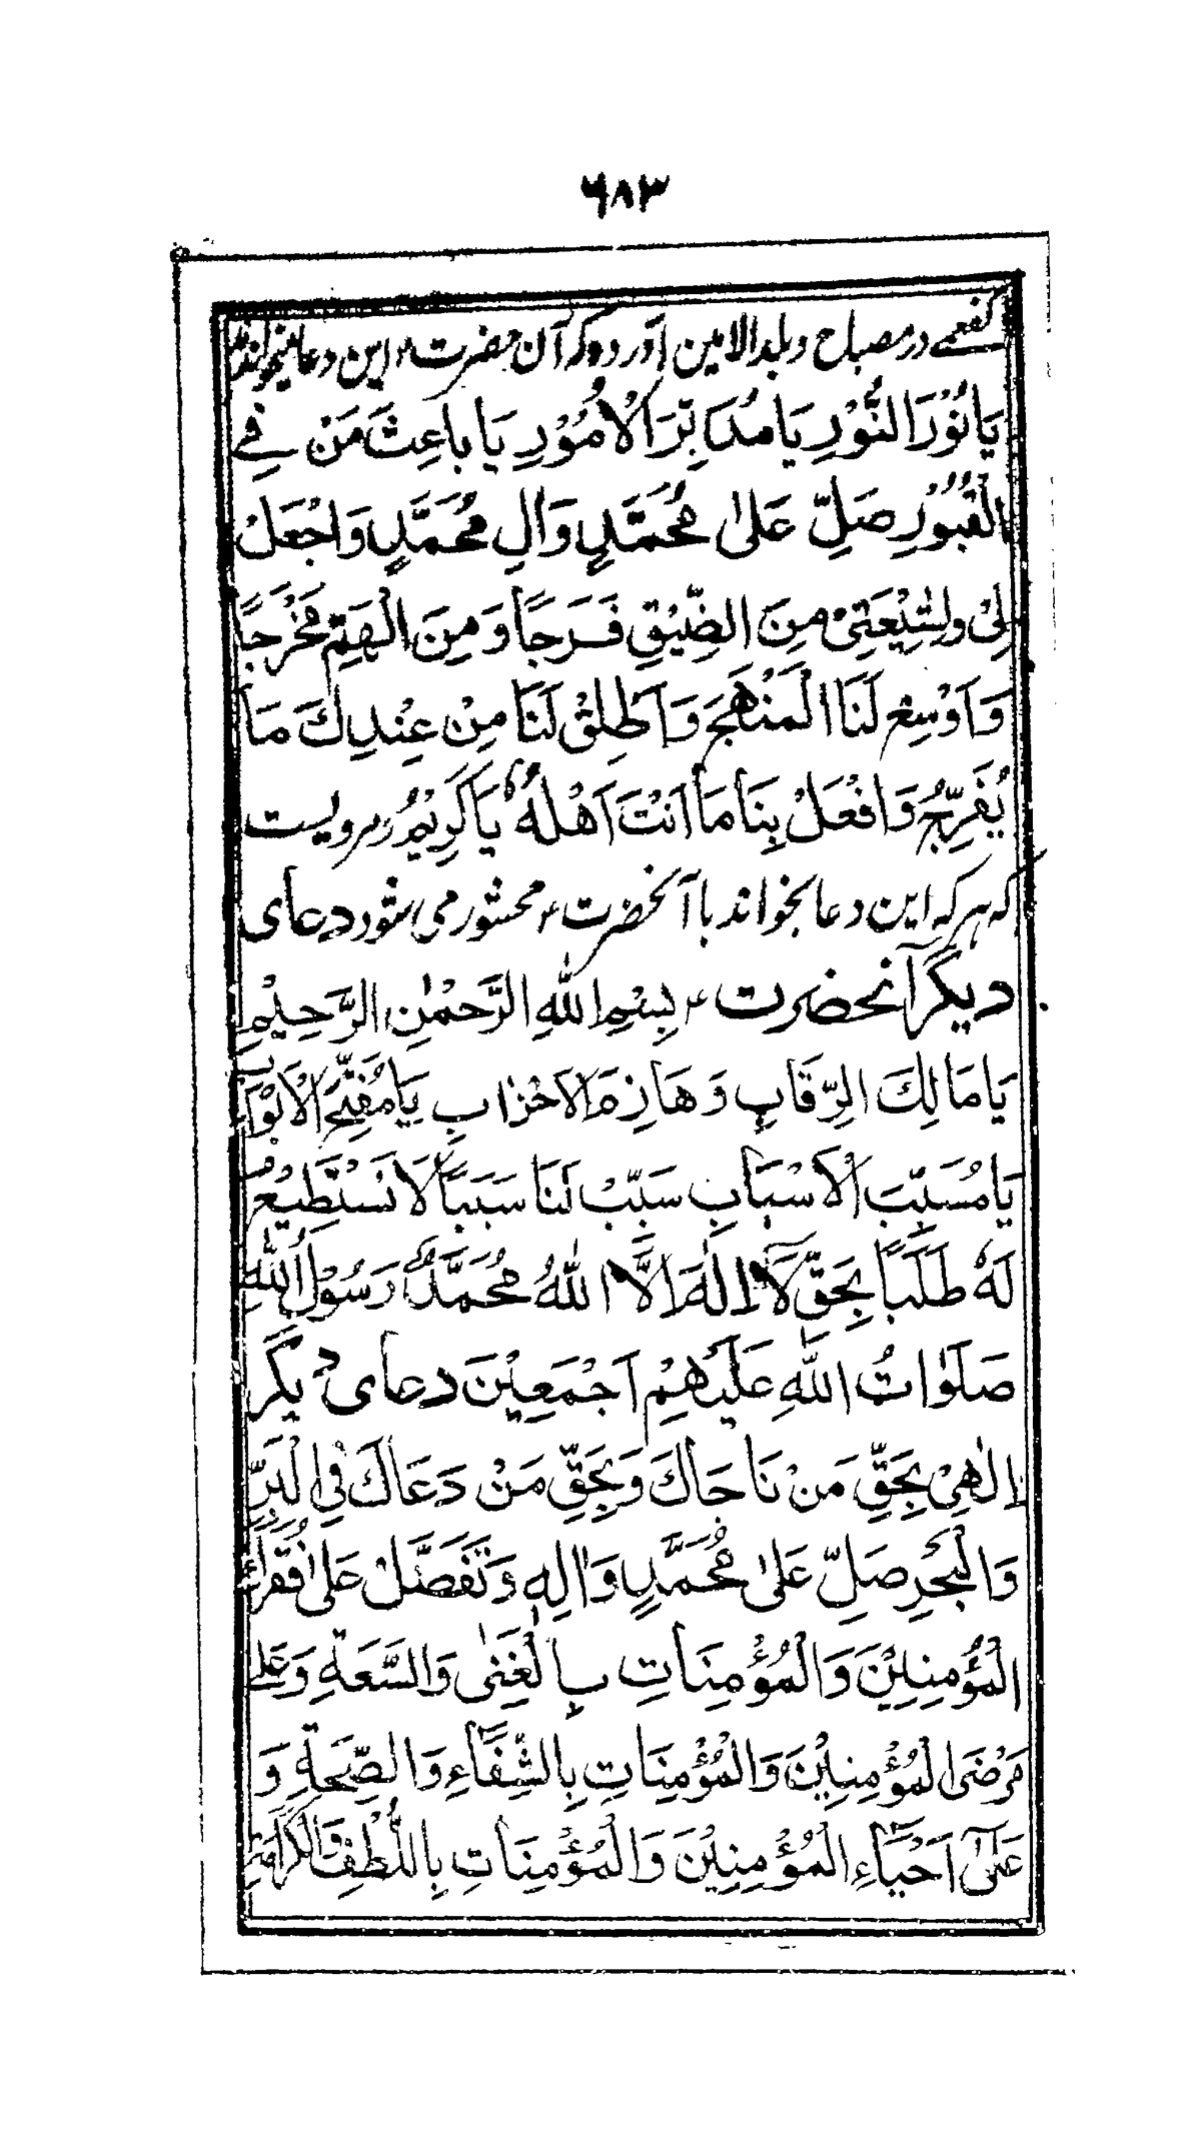 ۶۸۳
كفعمى در مصباح و بلد الامين آورده كه آن حضرت ع اين دعا ميخواندند
يَا نُوْرَ النُّوْرِ يَا مُدَبِّرَ الْاُمُوْرِ يَا بَاعِثَ مَنْ فِي
الْقُبُوْرِ صَلِّ عَلٰى مُحَمَّدٍ وَاٰلِ مُحَمَّدٍ وَاجْعَلْ
لِيْ وَلِشِيْعَتِيْ مِنَ الضِّيْقِ فَرَجًا وَمِنَ الْهَمِّ مَخْرَجًا
وَاَوْسِعْ لَنَا الْمَنْهَجَ وَاَطْلِقْ لَنَا مِنْ عِنْدِكَ مَا
يُفَرِّجُ وَافْعَلْ بِنَا مَا اَنْتَ اَهْلُهُ يَا كَرِيْمُ مرويست
كه هركه اين دعا بخواند با آنحضرت ع محشور مى شود دعاى
ديگر آنحضرت ع بِسْمِ اللّٰهِ الرَّحْمٰنِ الرَّحِيْمِ
يَا مَالِكَ الرِّقَابِ وَهَازِمَ الْاَحْزَابِ يَا مُفَتِّحَ الْاَبْوَابِ
يَا مُسَبِّبَ الْاَسْبَابِ سَبِّبْ لَنَا سَبَبًا لَا نَسْتَطِيْعُ
لَهُ طَلَبًا بِحَقِّ لَا اِلٰهَ اِلَّا اللّٰهُ مُحَمَّدٌ رَسُوْلُ اللّٰهِ
صَلَوَاتُ اللّٰهِ عَلَيْهِمْ اَجْمَعِيْنَ دعاى ديگر
اِلٰهِيْ بِحَقِّ مَنْ نَاجَاكَ وَبِحَقِّ مَنْ دَعَاكَ فِي الْبَرِّ
وَالْبَحْرِ صَلِّ عَلٰى مُحَمَّدٍ وَاٰلِهِ وَتَفَضَّلْ عَلٰى فُقَرَاءِ
الْمُؤْمِنِيْنَ وَالْمُؤْمِنَاتِ بِالْغِنٰى وَالسَّعَةِ وَعَلٰى
مَرْضَى الْمُؤْمِنِيْنَ وَالْمُؤْمِنَاتِ بِالشِّفَاءِ وَالصِّحَةِ وَ
عَلٰى اَحْيَاءِ الْمُؤْمِنِيْنَ وَالْمُؤْمِنَاتِ بِاللُّطْفِ وَالْكَرَامَةِ